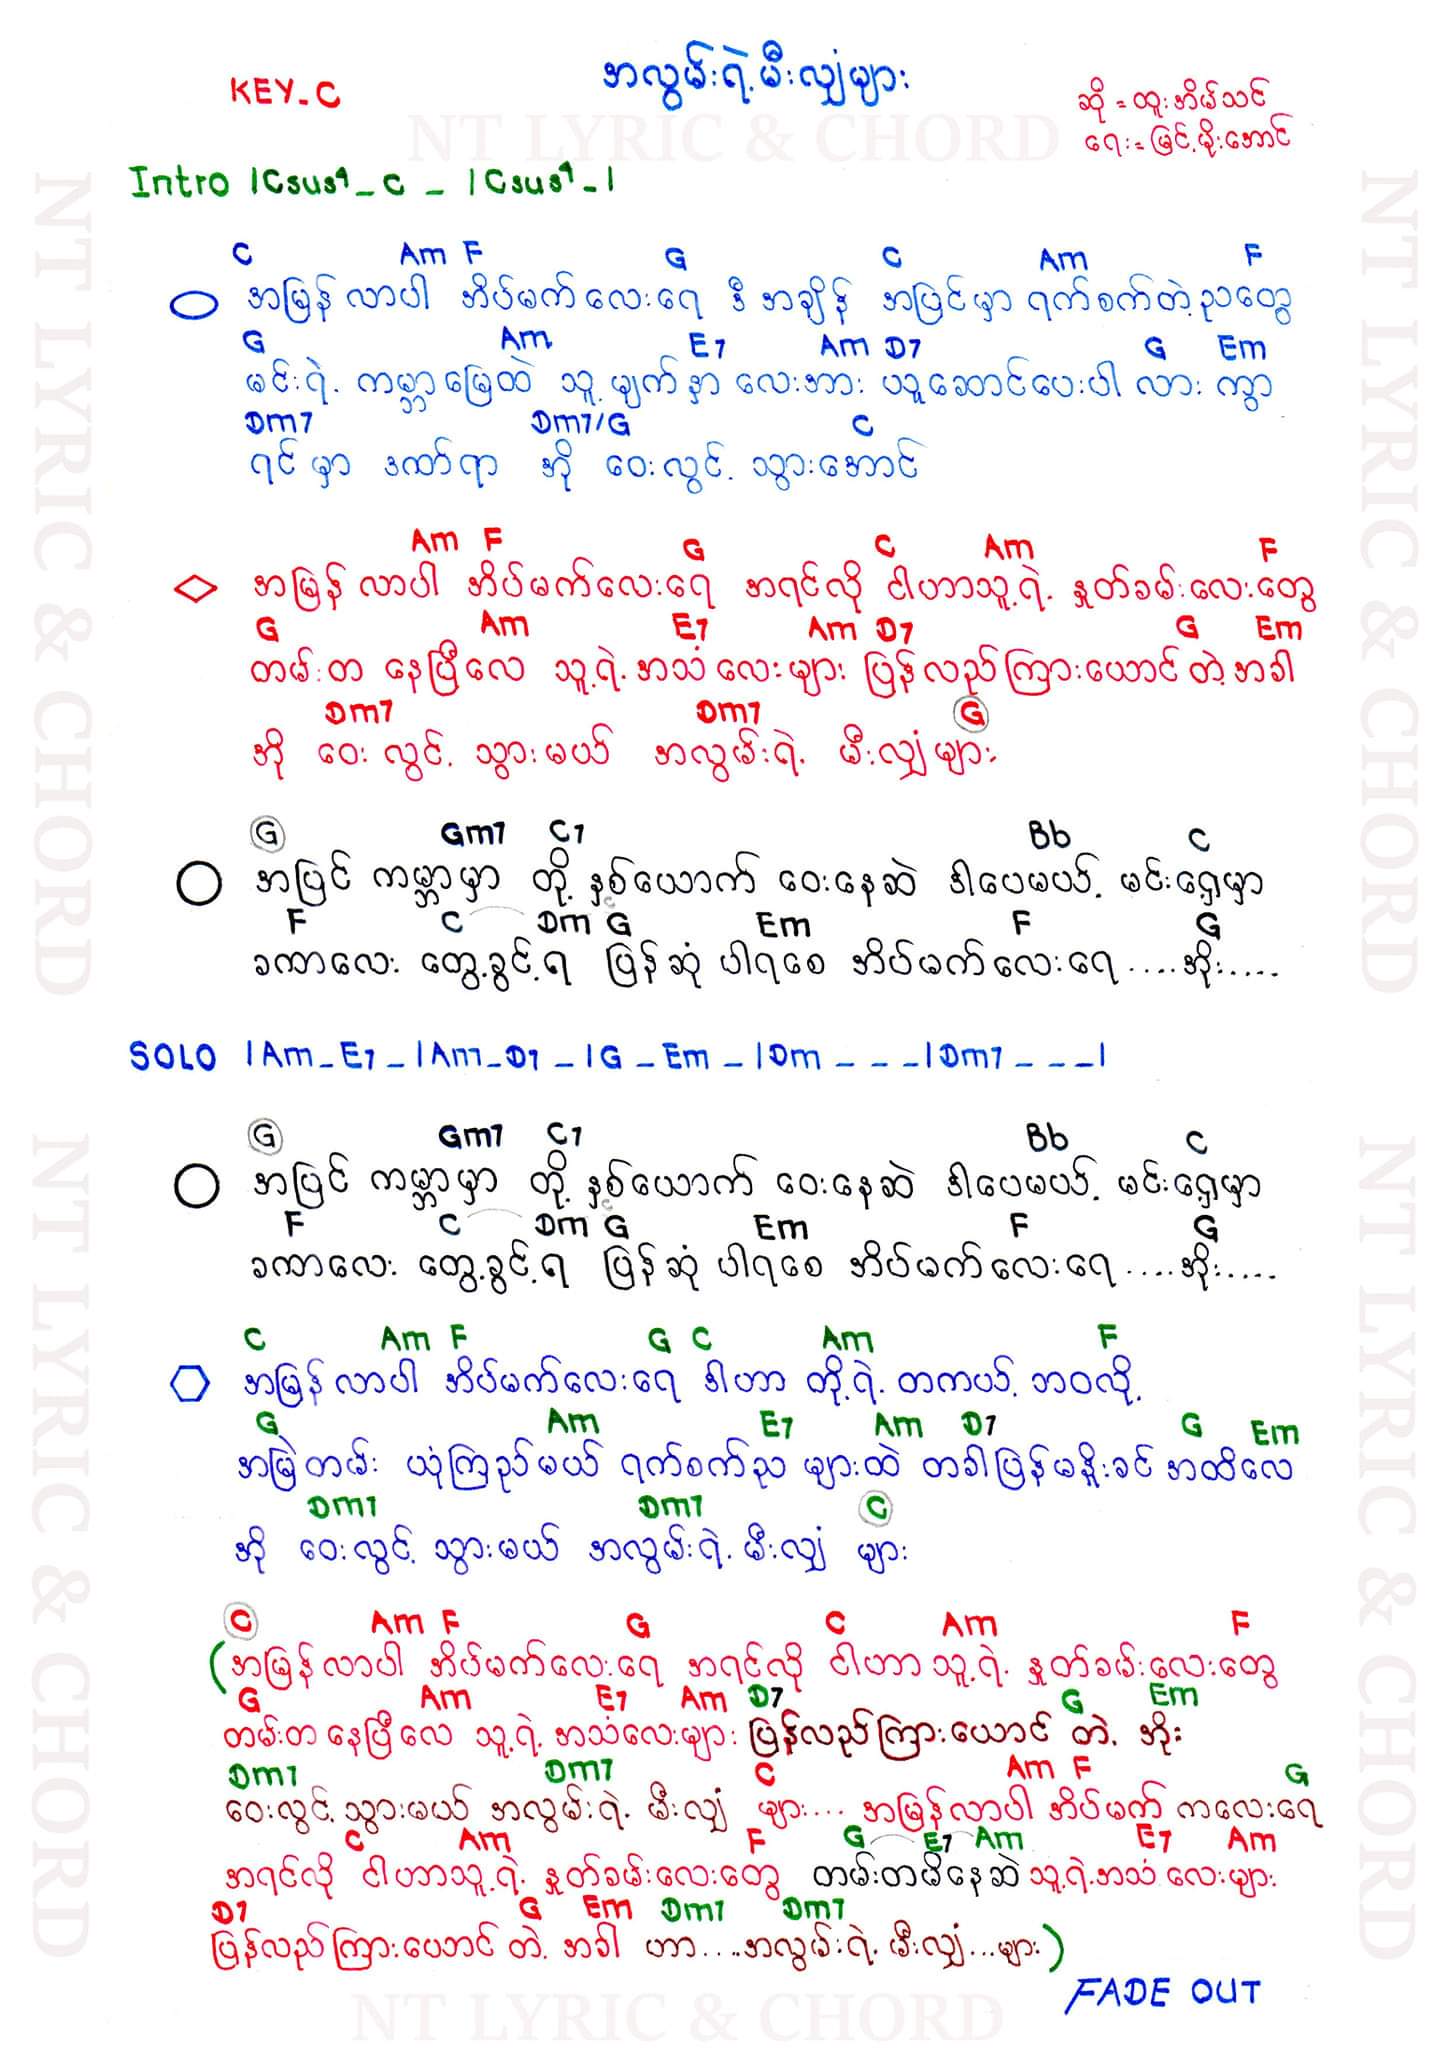 အလွမ်းရဲ့မီးလျှံများ
KEY-C
ဆို = ထူးအိမ်သင်
ရေး = မြင့်မိုးအောင်
NT LYRIC & CHORD
Intro |Csus4 - C - |Csus4 - |
C Am F G C Am F
အမြန်လာပါ အိပ်မက်လေးရေ ဒီအချိန် အပြင်မှာ ရက်စက်တဲ့ညတွေ
G Am E7 Am D7 G Em
မင်းရဲ့ ကမ္ဘာမြေထဲ သူ့မျက်နှာ လေးအား ယူဆောင်ပေးပါ လား ကွာ
Dm7 Dm7/G C
ရင်မှာ ဒဏ်ရာ အို ဝေးလွင့် သွားအောင်
Am F G C Am F
အမြန်လာပါ အိပ်မက်လေးရေ အရင်လို ငါဟာသူ့ရဲ့ နှုတ်ခမ်းလေးတွေ
G Am E7 Am D7 G Em
တမ်းတ နေပြီလေ သူ့ရဲ့အသံလေးများ ပြန်လည်ကြားယောင်တဲ့အခါ
Dm7 Dm7 G
အို ဝေးလွင့် သွားမယ် အလွမ်းရဲ့ မီးလျှံများ
G Gm7 C7 Bb C
အပြင် ကမ္ဘာမှာ တို့ နှစ်ယောက် ဝေးနေဆဲ ဒါပေမယ့် မင်းရှေ့မှာ
F C Dm G Em F G
ခဏလေး တွေ့ခွင့်ရ ပြန်ဆုံ ပါရစေ အိပ်မက်လေးရေ ....အိုး....
SOLO |Am - E7 - |Am - D7 - |G - Em - |Dm - - - |Dm7 - - - |
G Gm7 C7 Bb C
အပြင် ကမ္ဘာမှာ တို့ နှစ်ယောက် ဝေးနေဆဲ ဒါပေမယ့် မင်းရှေ့မှာ
F C Dm G Em F G
ခဏလေး တွေ့ခွင့်ရ ပြန်ဆုံ ပါရစေ အိပ်မက်လေးရေ ....အိုး....
C Am F G C Am F
အမြန်လာပါ အိပ်မက်လေးရေ ဒါဟာ တို့ရဲ့ တကယ့်ဘဝလို့
G Am E7 Am D7 G Em
အမြဲတမ်း ယုံကြည်မယ် ရက်စက်ည များထဲ တခါပြန်မနိုးခင် အထိလေ
Dm7 Dm7 C
အို ဝေးလွင့် သွားမယ် အလွမ်းရဲ့ မီးလျှံ များ
C Am F G C Am F
(အမြန်လာပါ အိပ်မက်လေးရေ အရင်လို ငါဟာ သူ့ရဲ့ နှုတ်ခမ်းလေးတွေ
G Am E7 Am D7 G Em
တမ်းတနေပြီလေ သူ့ရဲ့ အသံလေးများ ပြန်လည်ကြားယောင် တဲ့ အိုး
Dm7 Dm7 C Am F G
ဝေးလွင့် သွားမယ် အလွမ်းရဲ့ မီးလျှံ များ... အမြန်လာပါ အိပ်မက် ကလေးရေ
C Am F G E7 Am E7 Am
အရင်လို ငါဟာသူ့ရဲ့ နှုတ်ခမ်းလေးတွေ တမ်းတမိနေဆဲ သူ့ရဲ့အသံလေးများ
D7 G Em Dm7 Dm7
ပြန်လည်ကြားယောင် တဲ့ အခါ ဟာ....အလွမ်းရဲ့ မီးလျှံ...များ)
FADE OUT
NT LYRIC & CHORD
NT LYRIC & CHORD
NT LYRIC & CHORD
NT LYRIC & CHORD
NT LYRIC & CHORD